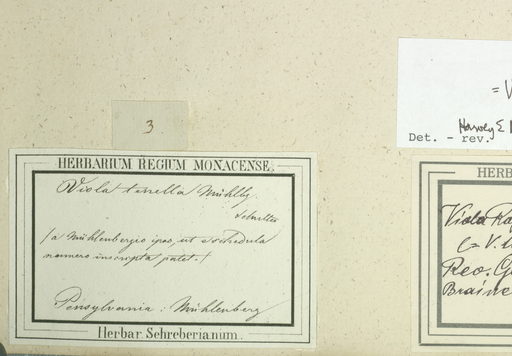 3
HERBARIUM REGIUM MONACENSE.
Viola tenella Mühlbg.
(a Mühlenbergio ipso, ut e schedula
numero inscripta patet.)
Pensylvania: Mühlenberg
Herbar. Schreberianum.
= V
Harvey E
Det. - rev.
HERB
Viola Raf
(= V.
Rev. G
Braine